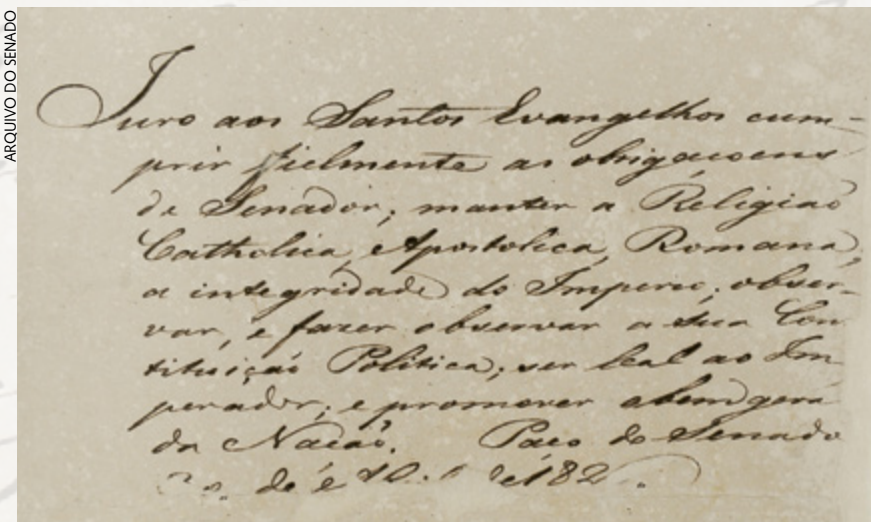 ARQUIVO DO SENADO
Juro aos Santos Evangelhos cum-
prir fielmente as obrigaçoens
de Senador; manter a Religiaõ
Catholica, Apostolica, Romana,
a integridade do Imperio; obser-
var, e fazer observar a sua Con
tituiçaõ Politica; ser leal ao Im
perador; e promover o bem gera
da Naçaõ. Paço do Senado
de de 182